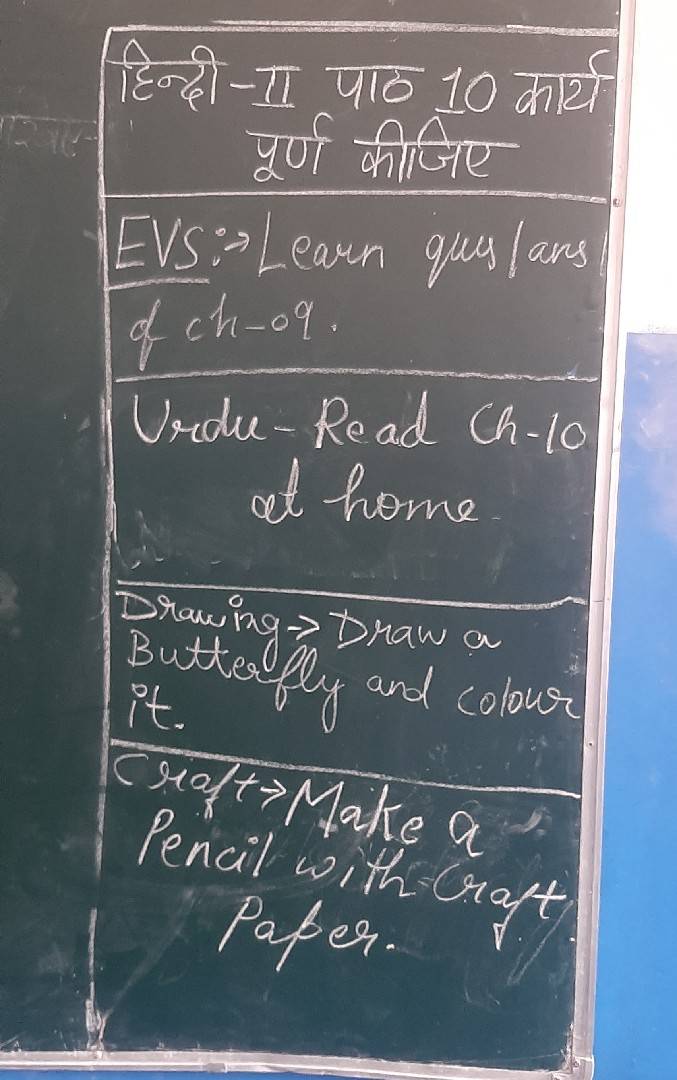 हिन्दी-II पाठ 10 कार्य
पूर्ण कीजिए
EVS:→ Learn ques/ans
of ch-09.
Urdu- Read Ch-10
at home
Drawing→ Draw a
Butterfly and colour
it.
Craft→ Make a
Pencil with Craft
Paper.